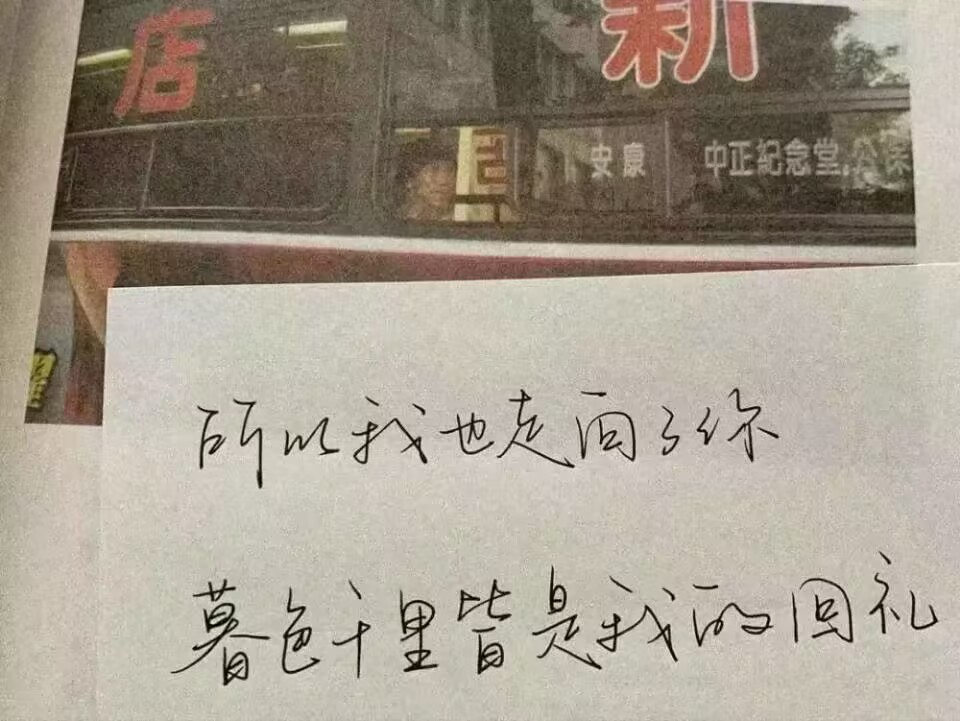 店
新
安康
中正紀念堂.公保
所以我也走向了你
暮色千里皆是我的回礼